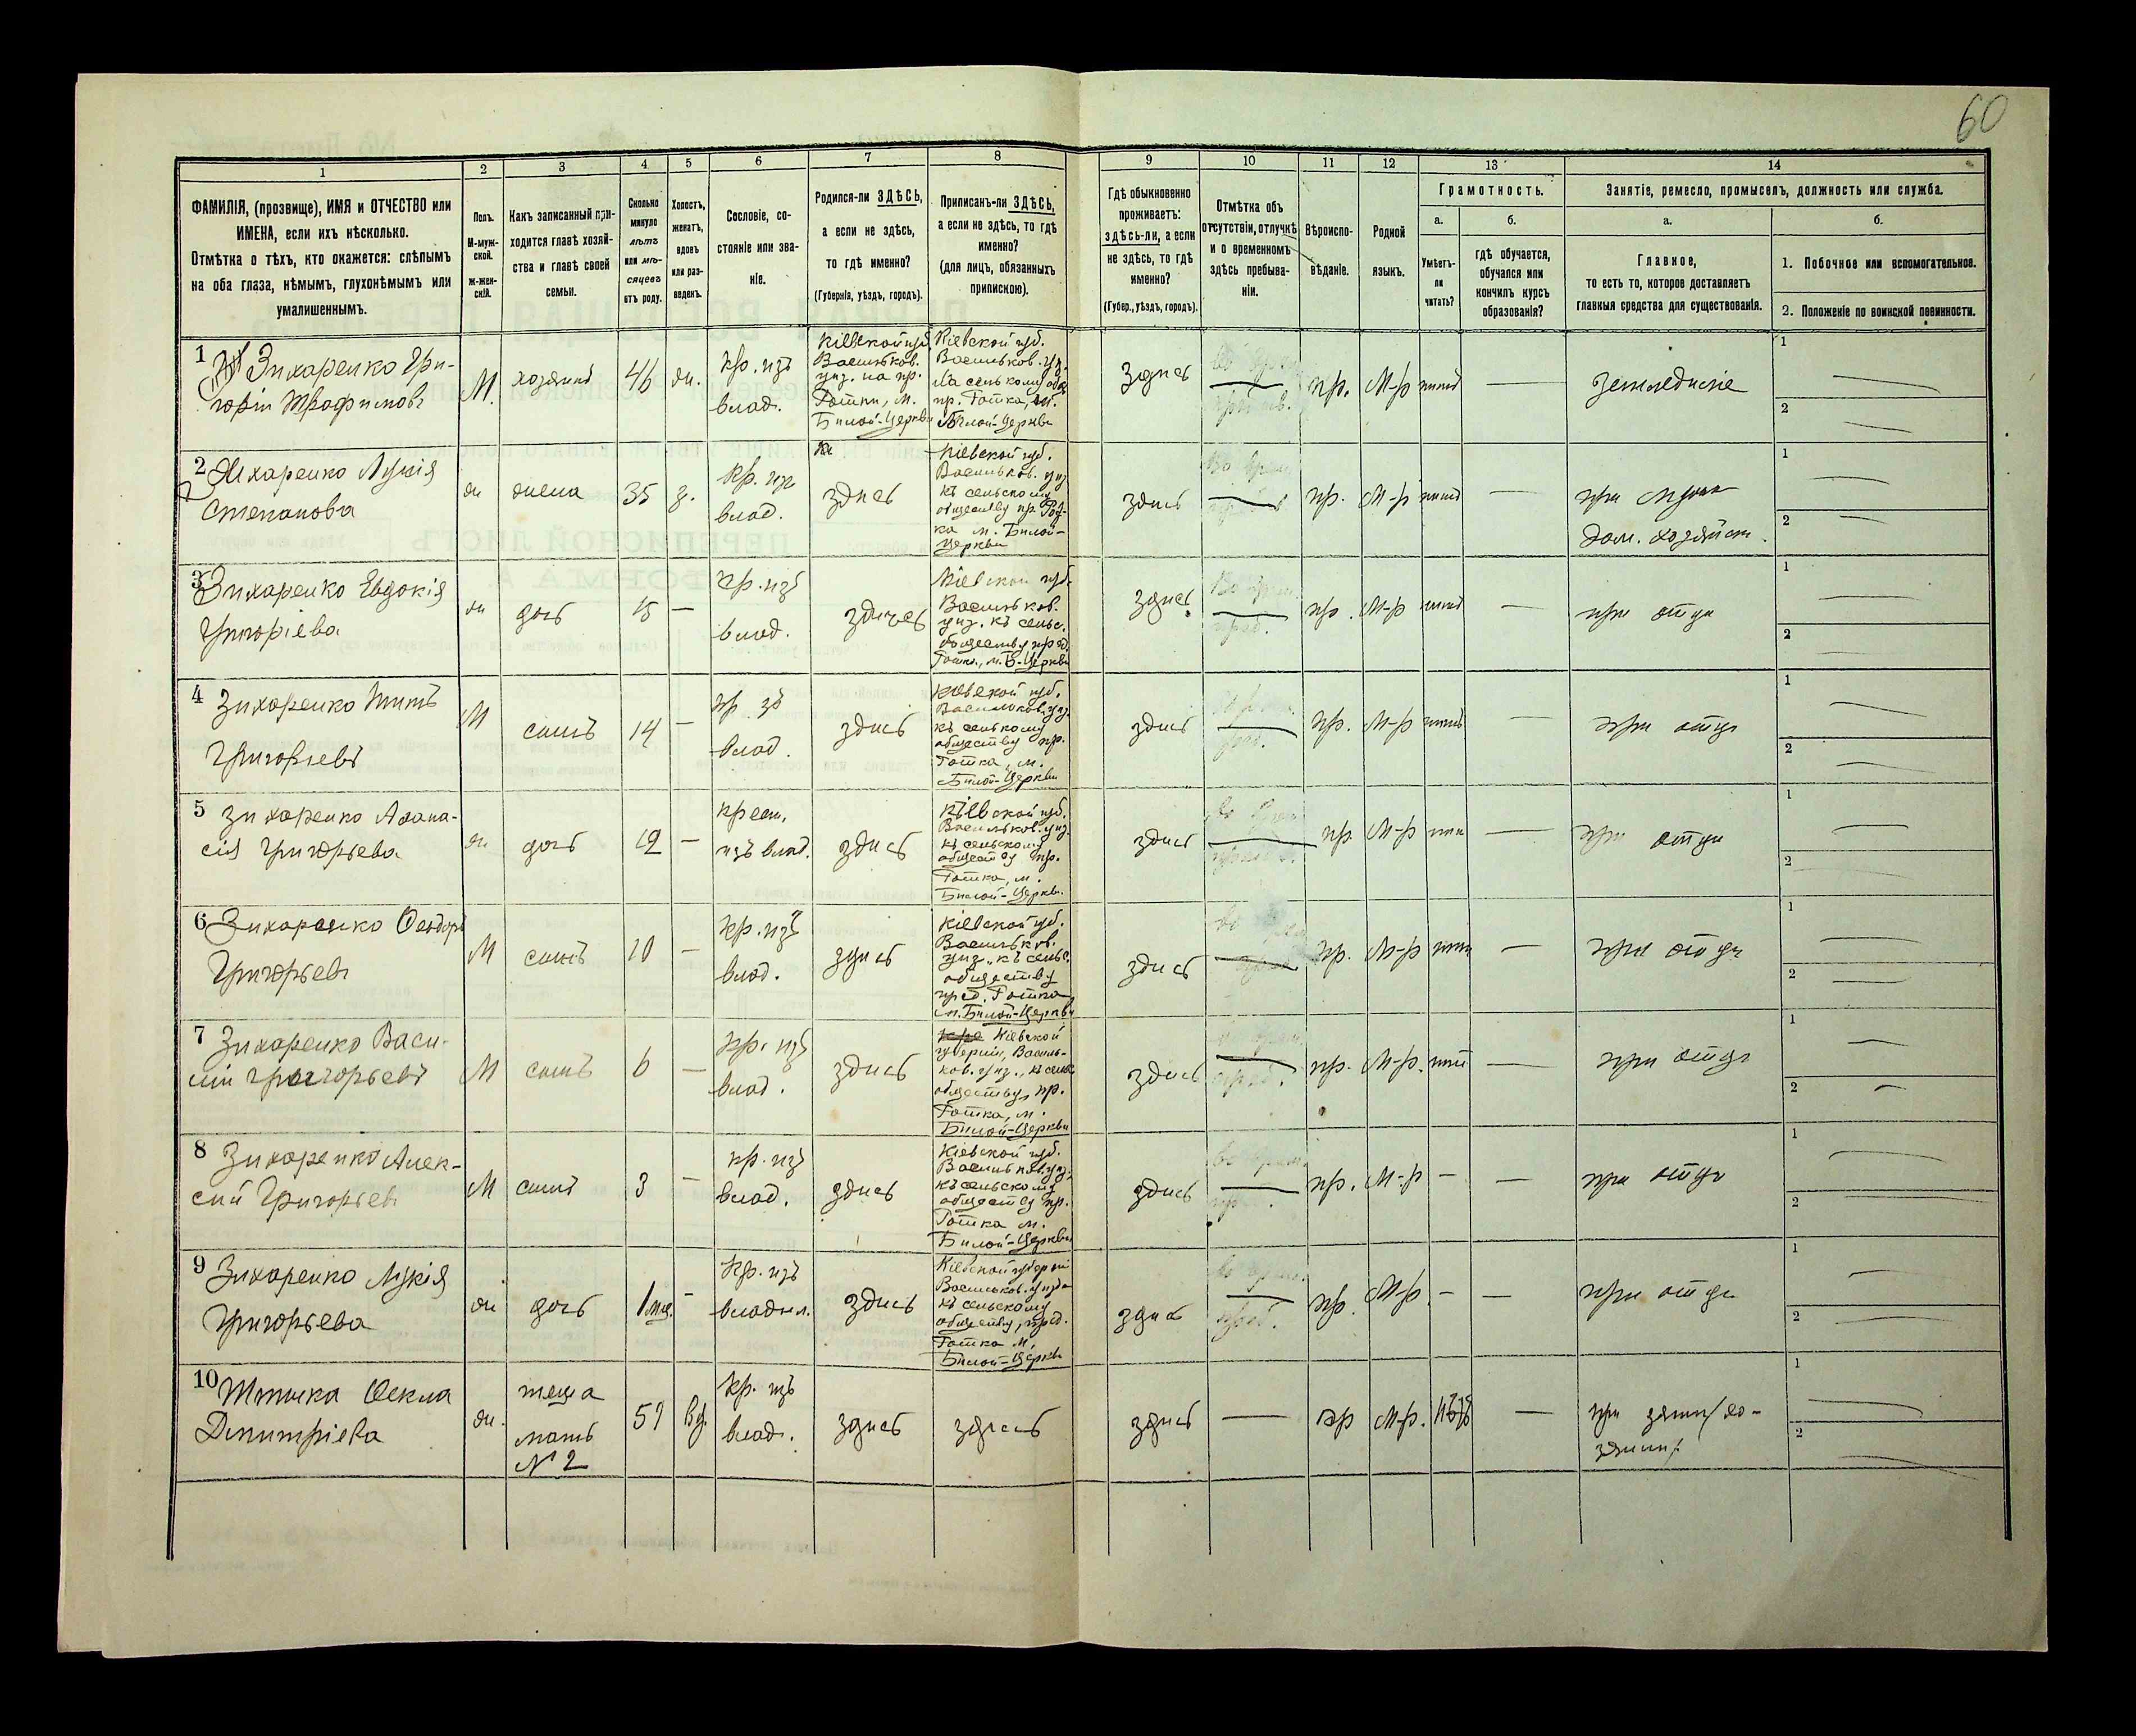 60
1
2
3
4
5
6
7
8
9
10
11
12
13
14
ФАМИЛІЯ, (прозвище), ИМЯ и ОТЧЕСТВО или
ИМЕНА, если ихъ нѣсколько.
Отмѣтка о тѣхъ, кто окажется: слѣпымъ
на оба глаза, нѣмымъ, глухонѣмымъ или
умалишеннымъ.
Полъ.
М-муж-
ской.
ж-жен-
скій.
Какъ записанный при-
ходится главѣ хозяй-
ства и главѣ своей
семьи.
Сколько
минуло
лѣтъ
или мѣ-
сяцевъ
отъ роду.
Холостъ,
женатъ,
вдовъ
или раз-
веденъ.
Сословіе, со-
стояніе или зва-
ніе.
Родился-ли ЗДѢСЬ,
а если не здѣсь,
то гдѣ именно?
(Губернія, уѣздъ, городъ).
Приписанъ-ли ЗДѢСЬ,
а если не здѣсь, то гдѣ
именно?
(для лицъ, обязанныхъ
припискою).
Гдѣ обыкновенно
проживаетъ:
здѣсь-ли, а если
не здѣсь, то гдѣ
именно?
(Губер., уѣздъ, городъ).
Отмѣтка объ
отсутствіи, отлучкѣ
и о временномъ
здѣсь пребыва-
ніи.
Вѣроиспо-
вѣданіе.
Родной
языкъ.
Грамотность.
а.
Умѣетъ-
ли
читать?
б.
гдѣ обучается,
обучался или
кончилъ курсъ
образованія?
Занятіе, ремесло, промыселъ, должность или служба.
а.
Главное,
то есть то, которое доставляетъ
главныя средства для существованія.
б.
1. Побочное или вспомогательное.
2. Положеніе по воинской повинности.
1 Зихаренко Гри-
горій Трофимовъ
М.
хозяинъ
46
ж.
Кр. изъ
влад.
Кіевской губ.
Васильков.
уѣз. на пр.
Готки, м.
Бѣлой-Церкви
Кіевской губ.
Васильков. уѣз.
пр. Готка, м.
Бѣлой-Церкви
здѣсь
пр.
М-р
нѣтъ
земледѣліе
1
2
2 Зихаренко Лукія
Степанова
ж
жена
35
з.
Кр. из
влад.
здѣсь
Кіевской губ.
Васильков. уѣз
къ сельскому
обществу пр. Гот-
ка м. Бѣлой-
Церкви
здѣсь
пр.
М-р
нѣтъ
при мужѣ
дом. хозяйст.
1
2
3 Зихаренко Евдокія
Григоріева
ж
дочь
15
кр. изъ
влад.
здѣсь
Кіевской губ.
Васильков.
уѣз. къ сельс.
обществу пред.
Готка, м. Б-Церкви
здѣсь
пр.
М-р
нѣтъ
при отцѣ
1
2
4 Зихаренко Титъ
Григорьевъ
М
сынъ
14
влад.
здѣсь
Кіевской губ.
Васильков. уѣз.
къ сельскому
обществу пр.
Готка, м.
Бѣлой-Церкви
здѣсь
пр.
М-р
нѣтъ
при отцѣ
1
2
5 Зихаренко Афана-
сія Григорьева
ж
дочь
12
крест.
изъ влад.
здѣсь
Кіевской губ.
Васильков. уѣз.
къ сельскому
обществу пр.
Готка, м.
Бѣлой-Церкви.
здѣсь
пр
М-р
при отцѣ
1
2
6 Зихаренко Ѳеодоръ
Григорьевъ
М
сынъ
10
кр. изъ
влад.
здѣсь
Кіевской губ.
Васильков.
уѣз., къ сельс.
обществу
пред. Готка
м. Бѣлой-Церкви
здѣсь
пр.
М-р
при отцѣ
1
2
7 Зихаренко Васи-
лій Григорьевъ
М
сынъ
6
кр. изъ
влад.
здѣсь
Кіевской
губерніи, Василь-
ков. уѣз., къ сельс.
обществу, пр.
Готка, м.
Бѣлой-Церкви
здѣсь
пр.
М-р.
нѣтъ
при отцѣ
1
2
8 Зихаренко Алек-
сѣй Григорьевъ
М
сынъ
3
кр. изъ
влад.
здѣсь
Кіевской губ.
Васильков. уѣз.
къ сельскому
обществу пр.
Готка м.
Бѣлой-Церкви
здѣсь
пр.
М-р
при отцѣ
1
2
9 Зихаренко Лукія
Григорьева
ж
дочь
1 мѣс.
Кр. изъ
здѣсь
Кіевской губерніи
Васильков. уѣзда
къ сельскому
обществу, пред.
Готка м.
Бѣлой-Церкви
здѣсь
пр.
М-р
при отцѣ
1
2
10 Ѳекла
Дмитріева
ж.
теща
мать
№ 2
Вд.
Кр. изъ
влад.
здѣсь
здѣсь
здѣсь
пр
М-р.
при зятѣ/хо-
зяинѣ/
1
2